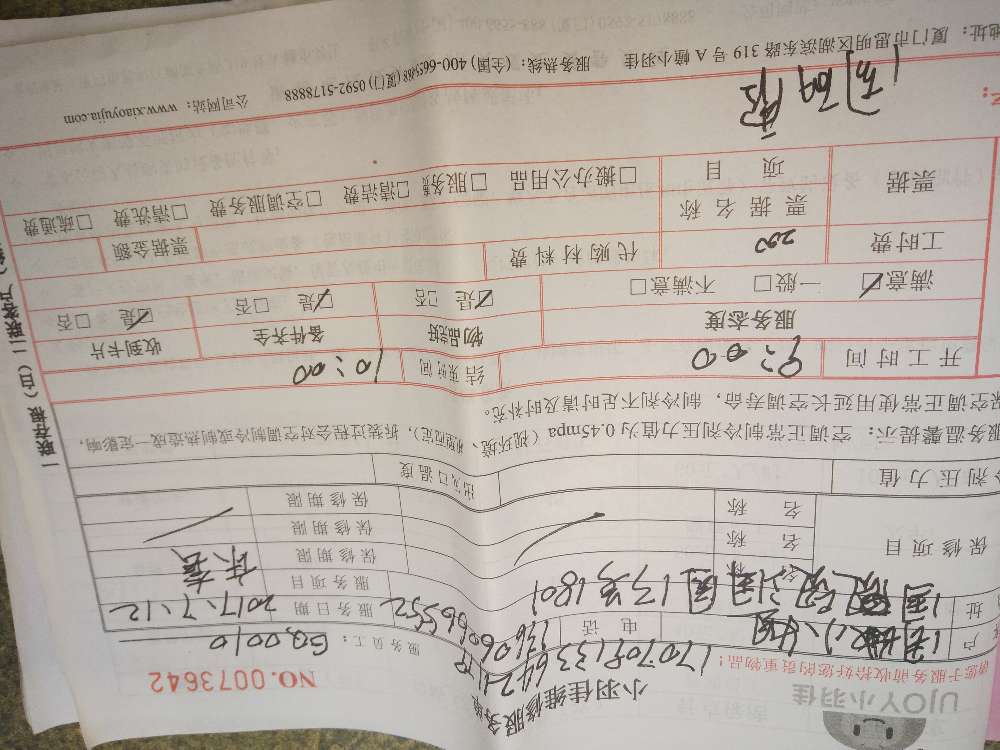 UJOY小羽佳
小羽佳维修服务单
NO.0073642
请您于服务前收拾好您的贵重物品!
服务员工:
户
电话
服务日期 2017.7.12
址 13号1801
服务项目
保修项目
名称
保修期限
名称
保修期限
名称
保修期限
冷剂压力值
出风口温度
服务温馨提示:空调正常制冷剂压力值为0.45mpa(视环境、机型而定),拆装过程会对空调制冷或制热造成一定影响,
保空调正常使用延长空调寿命,制冷剂不足时请及时补充。
开工时间 9:00 结束时间 10:00
服务态度 物品完好 备件齐全 收到卡片
满意☑ 一般□ 不满意□ ☑是 □否 ☑是 □否 ☑是 □否
工时费 200 代购材料费
票据
票据名称
票据金额
项目 □搬办公用品 □服务费 □清洁费 □空调服务费 □清洗费 □疏通费
地址:厦门市思明区湖滨东路319号A幢小羽佳 服务热线:(全国)400-665588(厦门)0592-5178888 公司网站:www.xiaoyujia.com
一联存根(白)二联客户